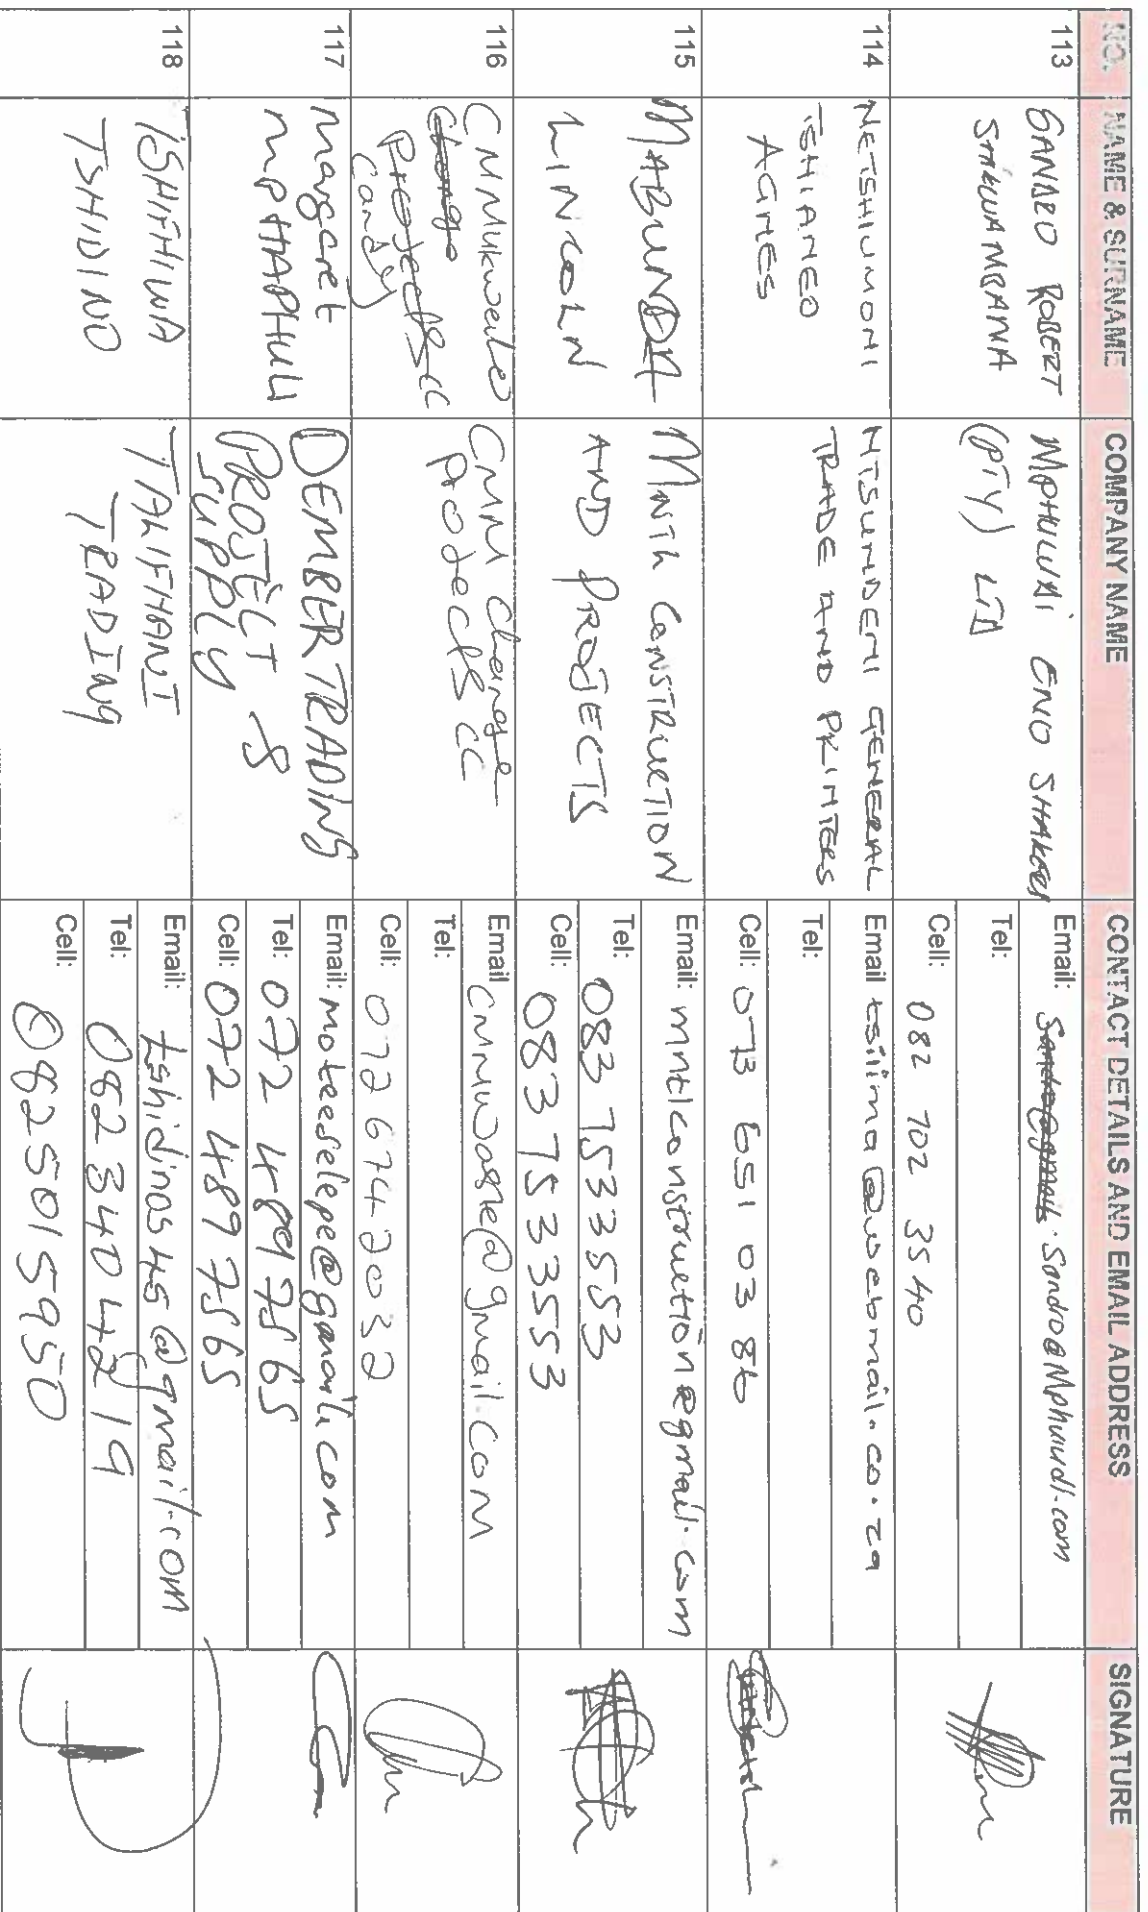 NO. NAME & SURNAME COMPANY NAME CONTACT DETAILS AND EMAIL ADDRESS SIGNATURE
113
SANDRO ROBERT
SHIKWAMBANA
MPHULUXI ENO SHAKOER
(PTY) LTD
Email: Sandro@Mphuludi.com
Tel:
Cell: 082 702 3540
114
NETSHIUMONI
TSHIANEO
AGNES
NTSUNDENI GENERAL
TRADE AND PRINTERS
Email tsiima@webmail.co.za
Tel:
Cell: 073 651 03 86
115
MABUNDA
LINCOLN
MNTL CONSTRUCTION
AND PROJECTS
Email: mntlconstruction@gmail.com
Tel: 083 7533553
Cell: 083 753 3553
116
CM Mukwevho
Projects CC
Candy
CMM Change
Projects CC
Email CMMwaste@gmail.com
Tel:
Cell: 0726742032
117
Margaret
MPHAPHULI
DEMBER TRADING
PROJECT &
SUPPLY
Email: moteeselepe@gmail.com
Tel: 072 489 7565
Cell: 072 489 7565
118
TSHIFHIWA
TSHIDINO
TALIFHANI
TRADING
Email: tshidinos45@gmail.com
Tel: 082 340 4219
Cell: 0825015950